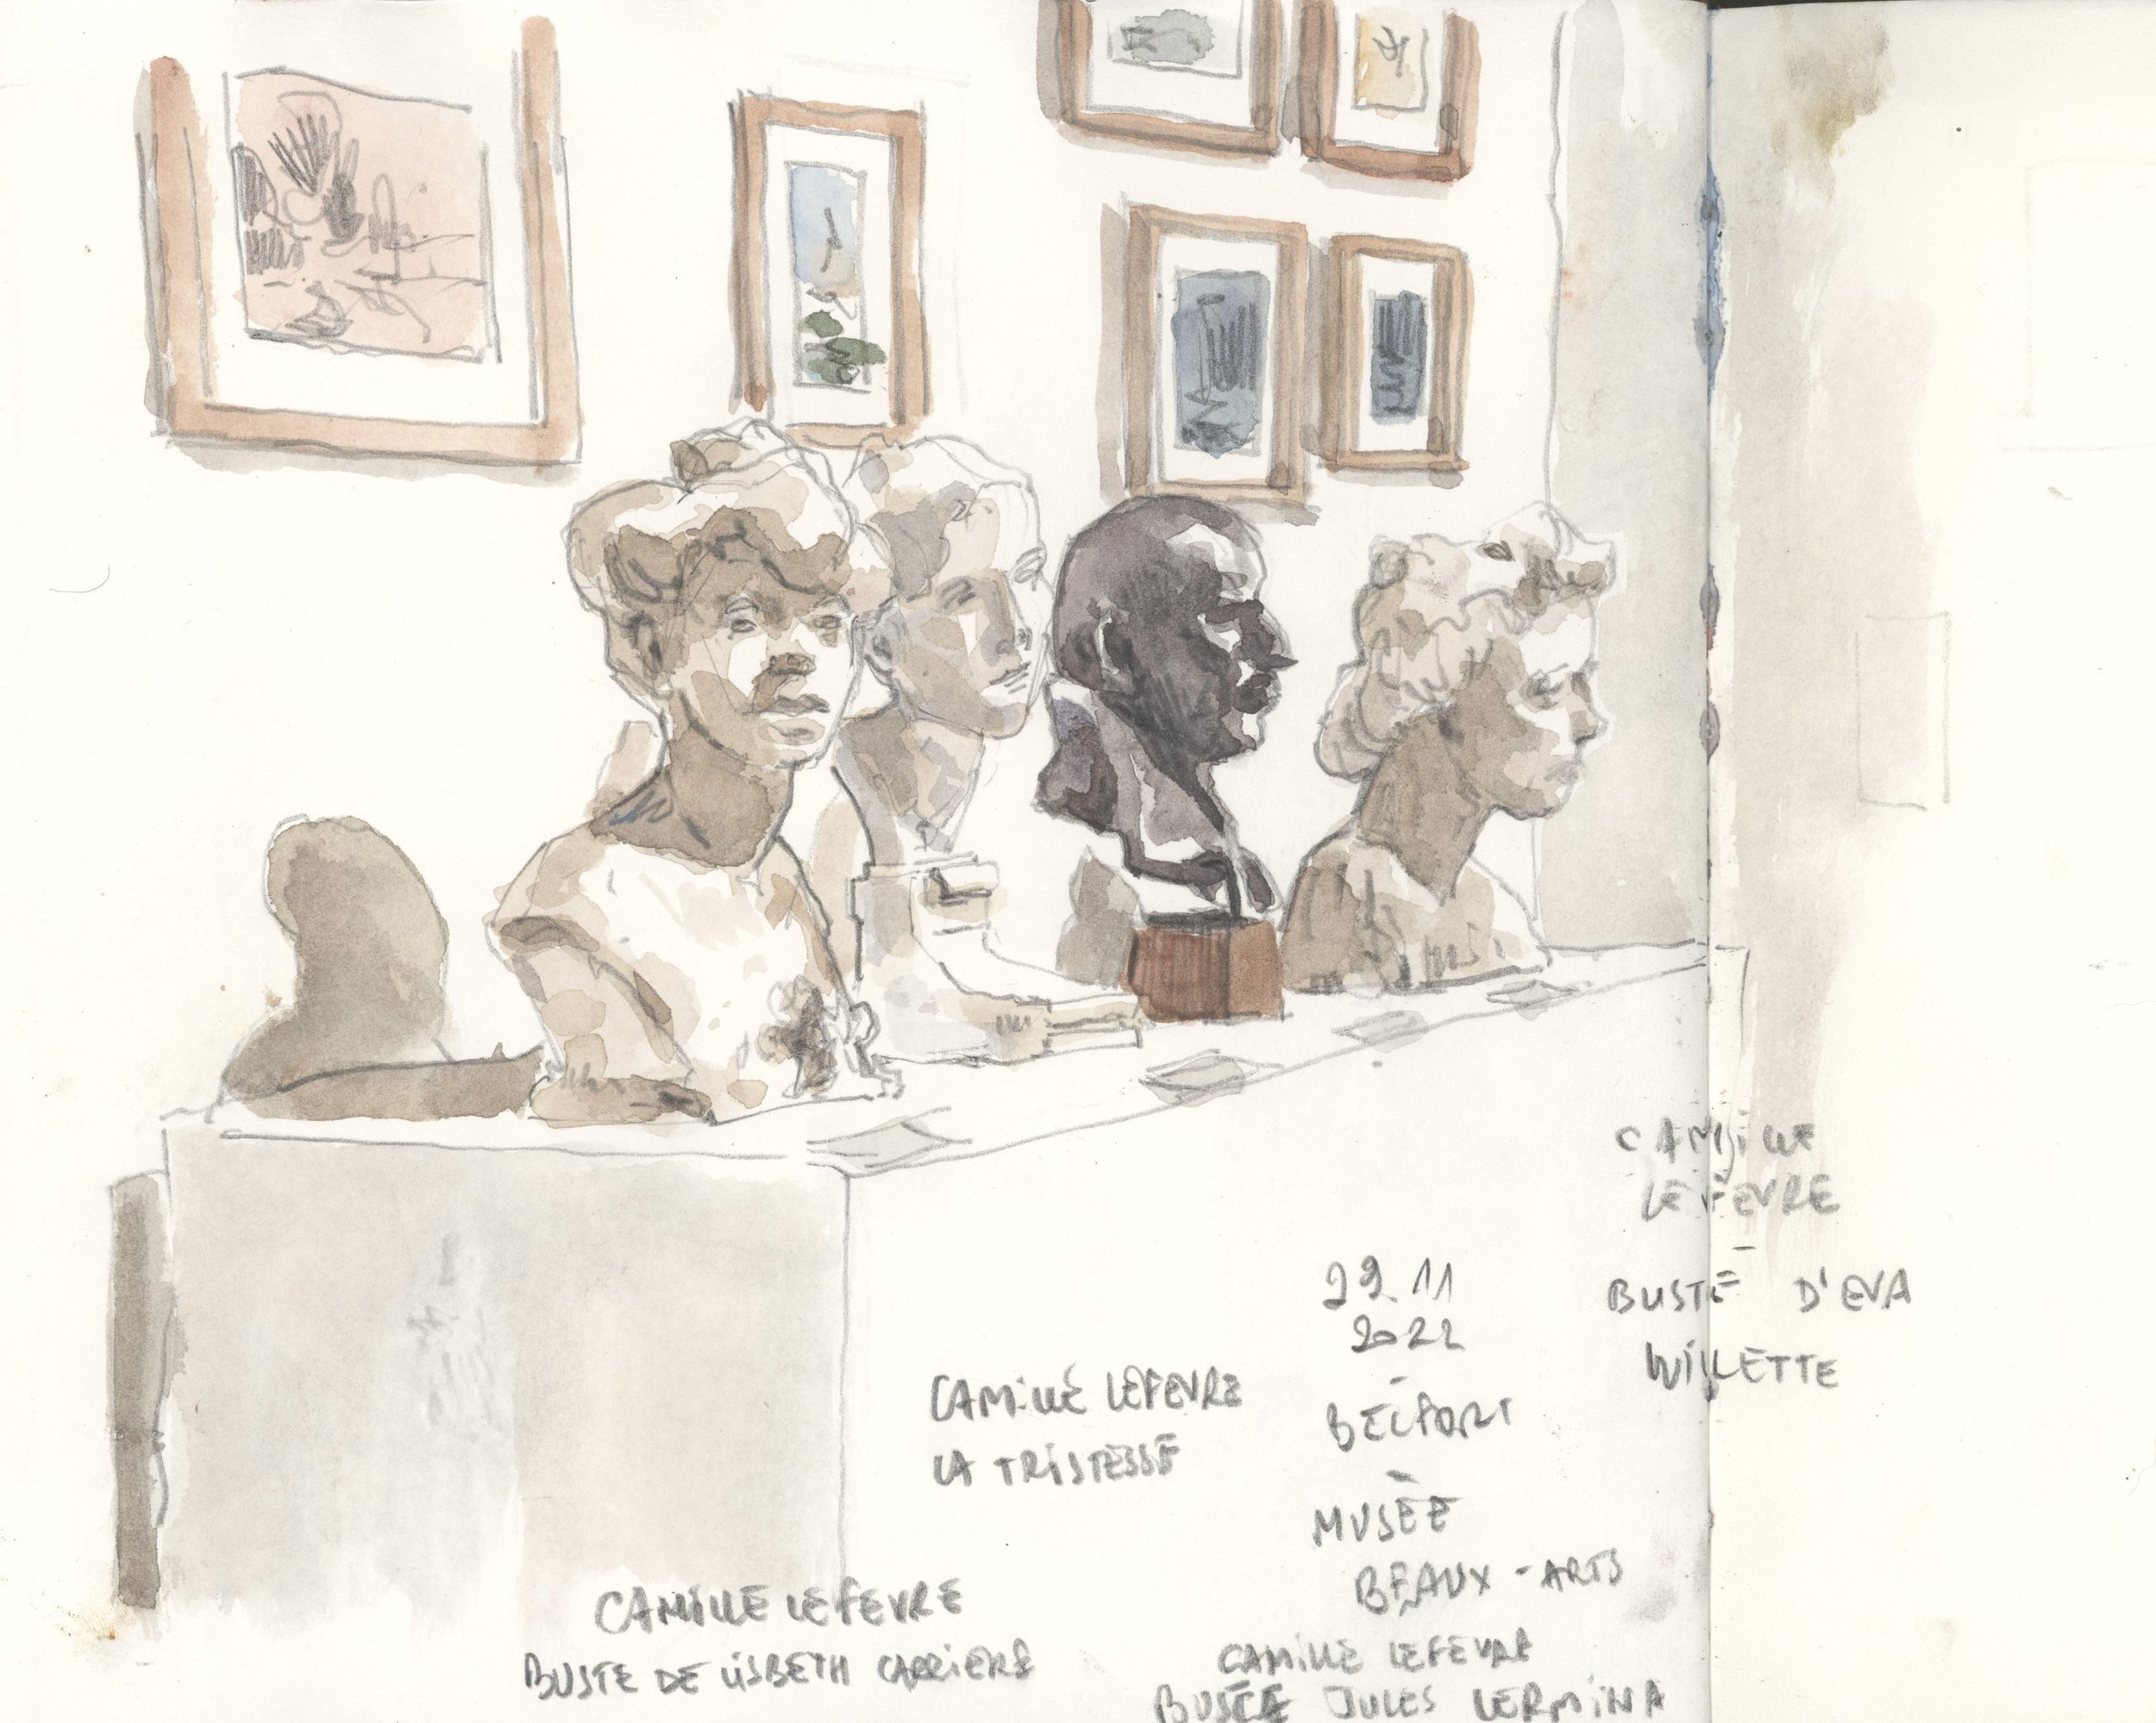 CAMiLLE LEFEVRE
BUSTE D'EVA
WiLLETTE
22 11
2022
-
BELFORT
-
MUSÉE
BEAUX-ARTS
CAMiLLE LEFEVRE
LA TRiSTESSE
CAMiLLE LEFEVRE
BUSTE DE LiSBETH CARRiERE
CAMiLLE LEFEVRE
BUSTE JULES LERMiNA